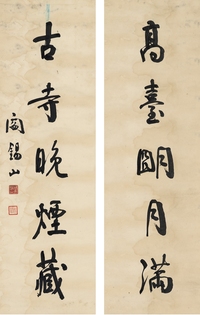 高臺明月滿
古寺晚煙藏
閻錫山